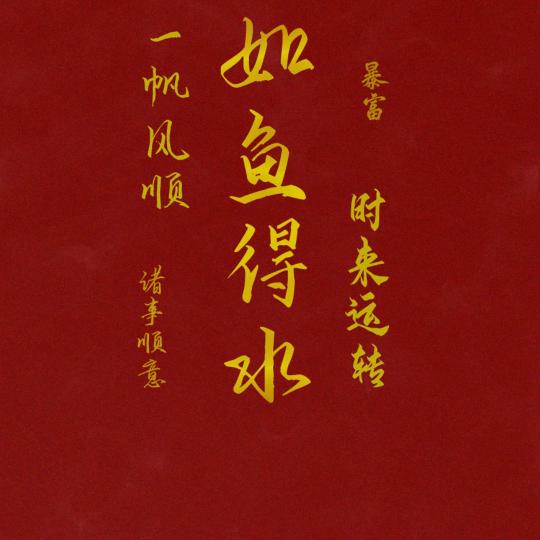 暴富
时来运转
如鱼得水
一帆风顺
诸事顺意